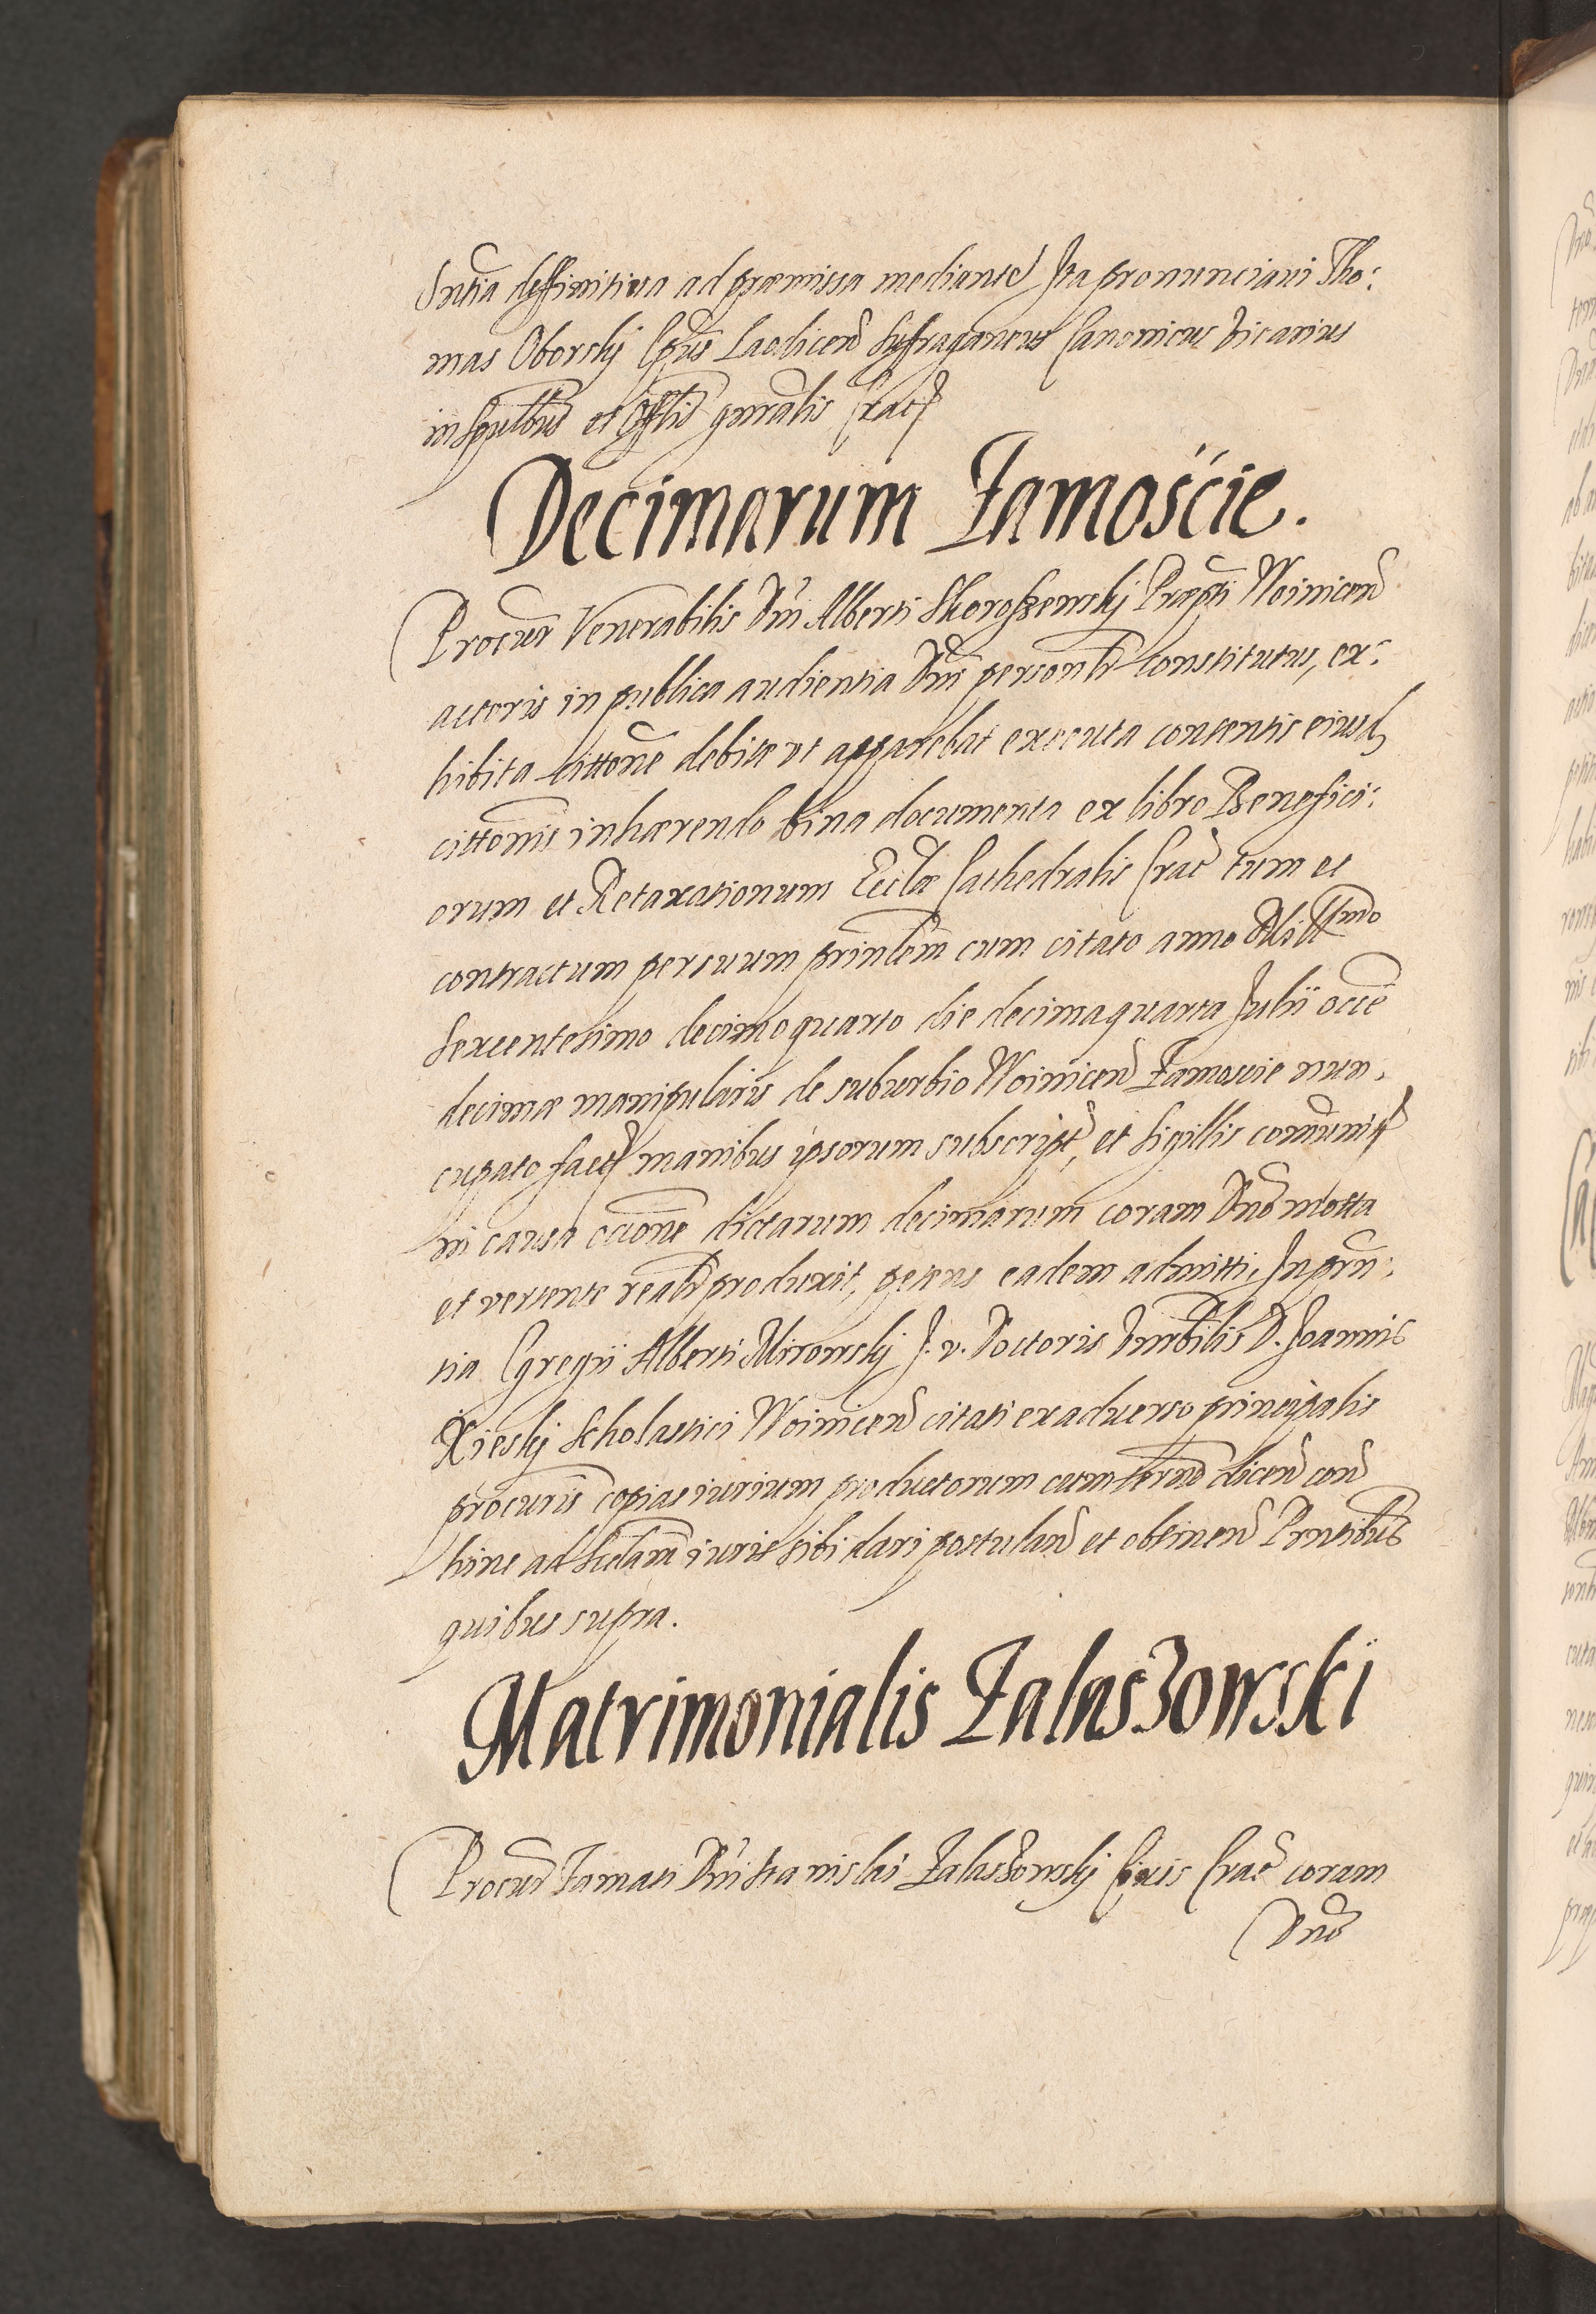 Sntia deffinitiva ad præmissa mediante Ita pronunciavi Tho:
mas Oborskj Epus Laodicen Suffraganeus Canonicus Vicarius
in Spulbus et Offlis gnralis Crac
Decimarum Zamoście.
Procur Venerabilis Dni Alberti Skoroszewskj Præpti Woinicen
actoris in publica audientia Dni personlr constitutus, ex:
hibita cittone debite ut apparebat executa contentis eiusd
cittonis inhærendo bina documenta ex libro Benefici:
orum et Retaxationum Ecclæ Cathedralis Crac tum et
contractum per suum prinlem cum citato anno Mill͠mo
Sexcentesimo decimoquarto die decimaquarta Julii occne
decimæ manipularis de suburbio Woinicen Zamoscie nun:
cupato fact manibus ipsorum subscript, et sigillis comunit
in causa occione dictarum decimarum coram Dno motta
et vertente realr produxit, petens eadem admitti, In prn:
tia Egregii Alberti Mirowskj J. v. Doctoris Dnrbilis D. Joannis
Xieskj Scholastici Woinicen citati ex adverso principalis
procuris copias iurium productorum cum termo dicen con
hinc ad sctdam iuris sibi dari postulan et obtinen Prntibus
quibus supra.
Matrimonialis Zalaszowski
Procur Famati Dni Stanislai Zalaszowskj Civis Crac coram
Dno